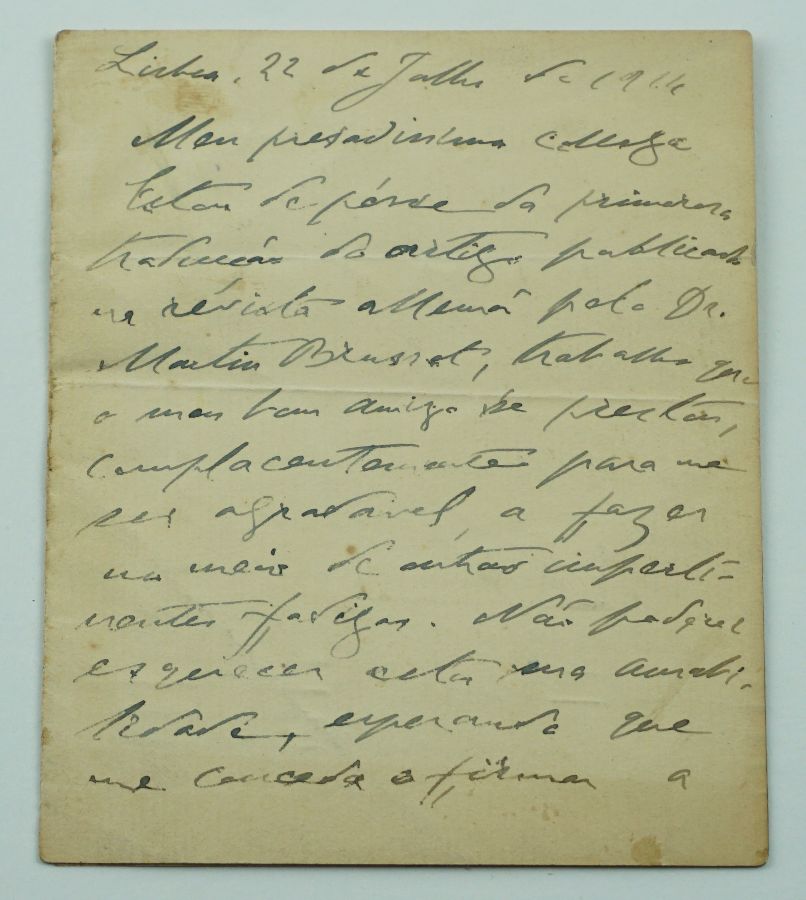 Lisboa, 22 de Julho de 1914
Meu presadissimo collega
Estou de pósse da primorosa
traducção do artigo publicado
na révista allemã pelo Dr.
Martin Brussot, trabalho que
o meu bom amigo se prestou,
complacentemente para me
ser agradavel, a fazer
no meio de outras imperti-
nentes fadigas. Não poderei
esquecer esta sua amabi-
lidade, esperando que
me conceda o firmar a